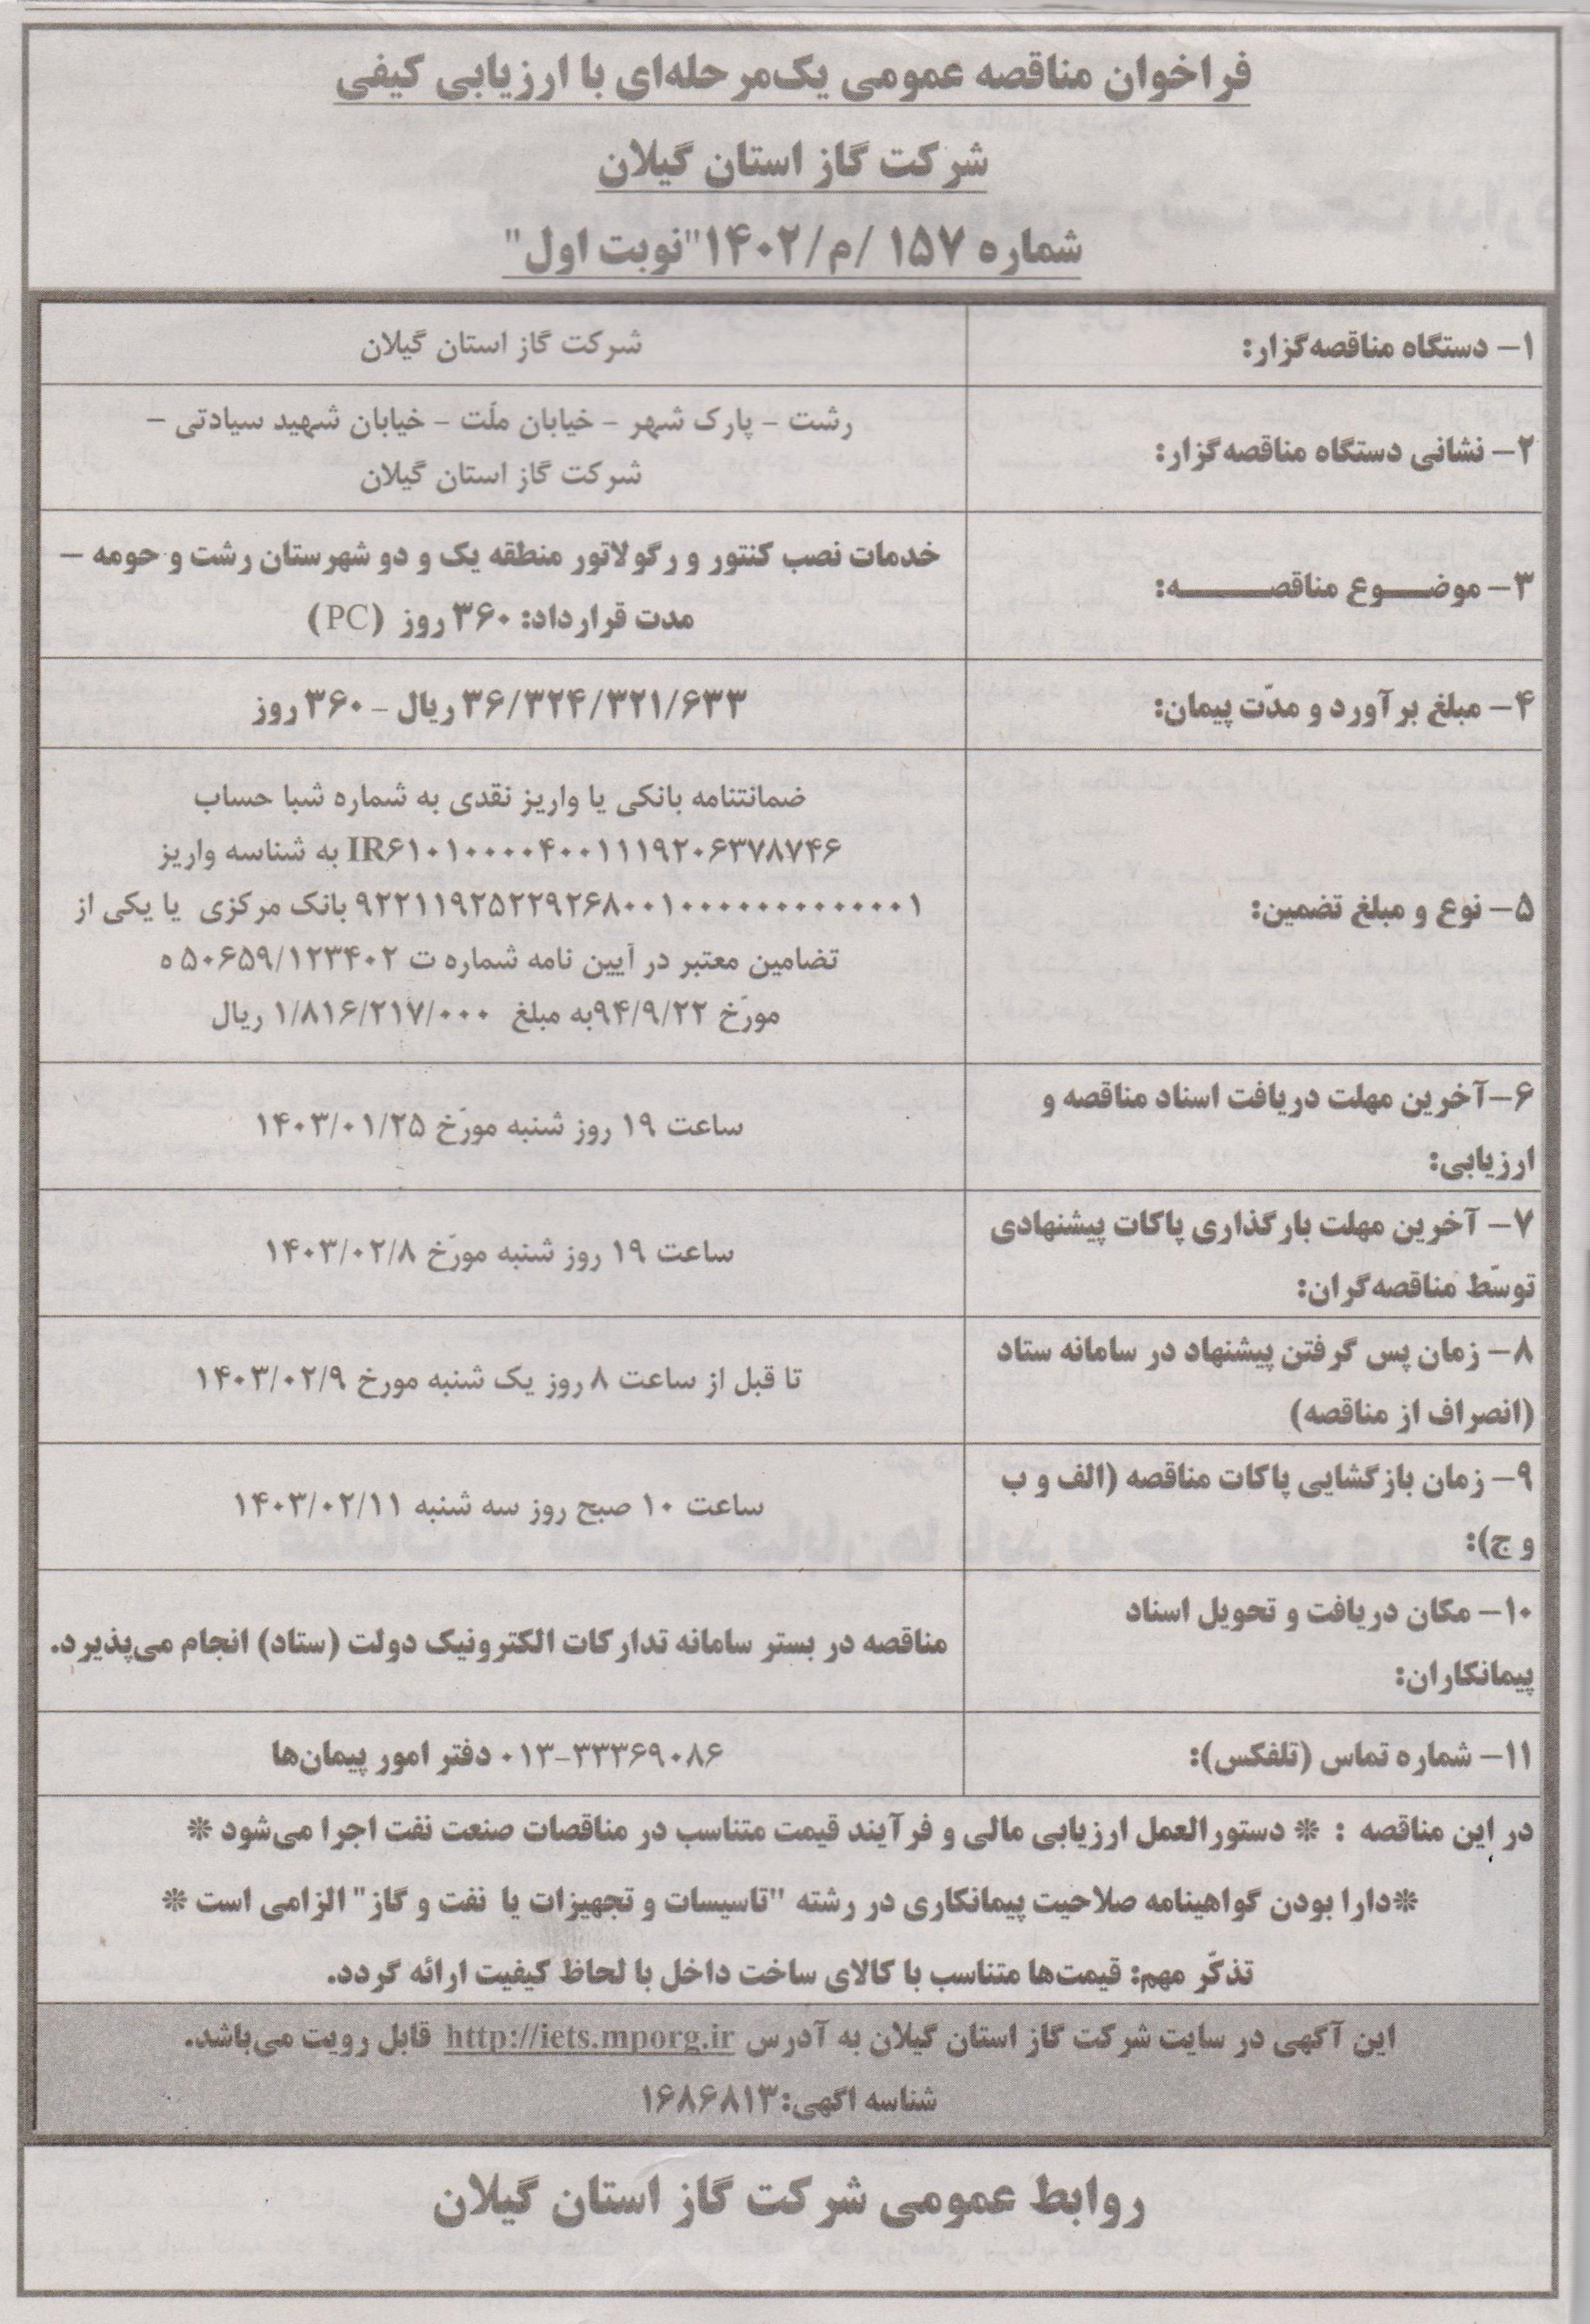 فراخوان مناقصه عمومی یک‌مرحله‌ای با ارزیابی کیفی
شرکت گاز استان گیلان
شماره ۱۵۷ /م/۱۴۰۲"نوبت اول"
۱- دستگاه مناقصه‌گزار:
شرکت گاز استان گیلان
۲- نشانی دستگاه مناقصه‌گزار:
رشت - پارک شهر - خیابان ملّت - خیابان شهید سیادتی -
شرکت گاز استان گیلان
۳- موضـــوع مناقصـــــــه:
خدمات نصب کنتور و رگولاتور منطقه یک و دو شهرستان رشت و حومه -
مدت قرارداد: ۳۶۰ روز (PC)
۴- مبلغ برآورد و مدّت پیمان:
۳۶/۳۲۴/۳۲۱/۶۳۳ ریال - ۳۶۰ روز
۵- نوع و مبلغ تضمین:
ضمانتنامه بانکی یا واریز نقدی به شماره شبا حساب
IR۶۱۰۱۰۰۰۰۴۰۰۱۱۱۹۲۰۶۳۷۸۷۴۶ به شناسه واریز
۹۲۲۱۱۹۲۵۲۲۹۲۶۸۰۰۱۰۰۰۰۰۰۰۰۰۰۰۰۱ بانک مرکزی یا یکی از
تضامین معتبر در آیین نامه شماره ت ۵۰۶۵۹/۱۲۳۴۰۲ ه
مورّخ ۹۴/۹/۲۲به مبلغ ۱/۸۱۶/۲۱۷/۰۰۰ ریال
۶-آخرین مهلت دریافت اسناد مناقصه و
ارزیابی:
ساعت ۱۹ روز شنبه مورّخ ۱۴۰۳/۰۱/۲۵
۷- آخرین مهلت بارگذاری پاکات پیشنهادی
توسّط مناقصه‌گران:
ساعت ۱۹ روز شنبه مورّخ ۱۴۰۳/۰۲/۸
۸- زمان پس گرفتن پیشنهاد در سامانه ستاد
(انصراف از مناقصه)
تا قبل از ساعت ۸ روز یک شنبه مورخ ۱۴۰۳/۰۲/۹
۹- زمان بازگشایی پاکات مناقصه (الف و ب
و ج):
ساعت ۱۰ صبح روز سه شنبه ۱۴۰۳/۰۲/۱۱
۱۰- مکان دریافت و تحویل اسناد
پیمانکاران:
مناقصه در بستر سامانه تدارکات الکترونیک دولت (ستاد) انجام می‌پذیرد.
۱۱- شماره تماس (تلفکس):
۰۱۳-۳۳۳۶۹۰۸۶ دفتر امور پیمان‌ها
در این مناقصه : * دستورالعمل ارزیابی مالی و فرآیند قیمت متناسب در مناقصات صنعت نفت اجرا می‌شود *
*دارا بودن گواهینامه صلاحیت پیمانکاری در رشته "تاسیسات و تجهیزات یا نفت و گاز" الزامی است *
تذکّر مهم: قیمت‌ها متناسب با کالای ساخت داخل با لحاظ کیفیت ارائه گردد.
این آگهی در سایت شرکت گاز استان گیلان به آدرس http://iets.mporg.ir قابل رویت می‌باشد.
شناسه اگهی:۱۶۸۶۸۱۳
روابط عمومی شرکت گاز استان گیلان